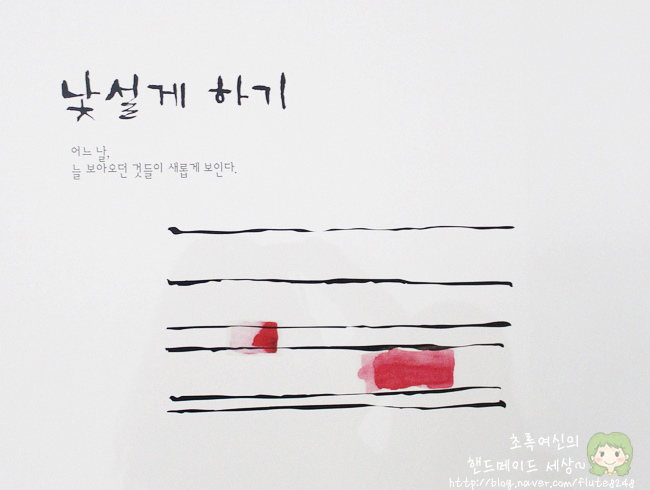 낯설게 하기
어느 날,
늘 보아오던 것들이 새롭게 보인다.
초록여신의
핸드메이드 세상~
http://blog.naver.com/flute8248